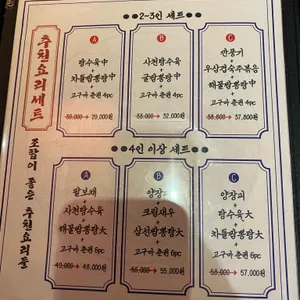 추천요리세트
조합이 좋은 추천요리들
2~3인 세트
A
탕수육中
+
차돌짬뽕탕中
+
고구마 춘권 4pc
30,000 → 29,000원
B
사천탕수육
+
굴짬뽕탕中
+
고구마 춘권 4pc
35,000 → 32,000원
C
깐풍기
+
우삼겹숙주볶음
+
해물짬뽕탕中
+
고구마 춘권 4pc
37,800원
4인 이상 세트
A
팔보채
+
사천탕수육
+
해물짬뽕탕大
+
고구마 춘권 6pc
49,000 → 48,000원
B
양장피
+
크림새우
+
삼선짬뽕탕大
+
고구마 춘권 6pc
55,000원
C
양장피
+
탕수육大
+
차돌짬뽕탕大
+
고구마 춘권 6pc
57,000원